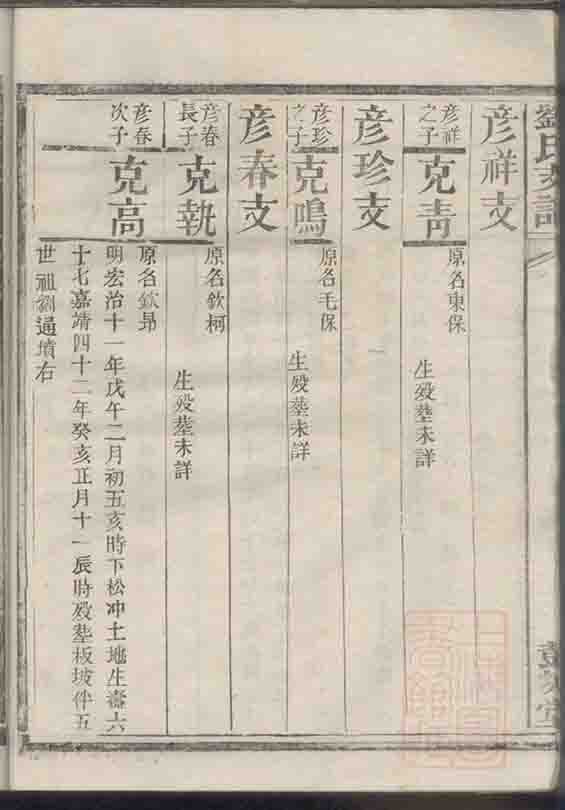 劉氏支譜
彦祥支
彦祥之子
克青
原名東保
生殁塟未詳
彦珍支
彦珍之子
克鳴
原名毛保
生殁塟未詳
彦春支
彦春長子
克執
原名欽柯
生殁塟未詳
彦春次子
克高
原名欽昻
明宏治十一年戊午二月初五亥時下松冲土地生壽六
十七嘉靖四十二年癸亥正月十一辰時殁塟板坡伴五
世祖劉通墳右